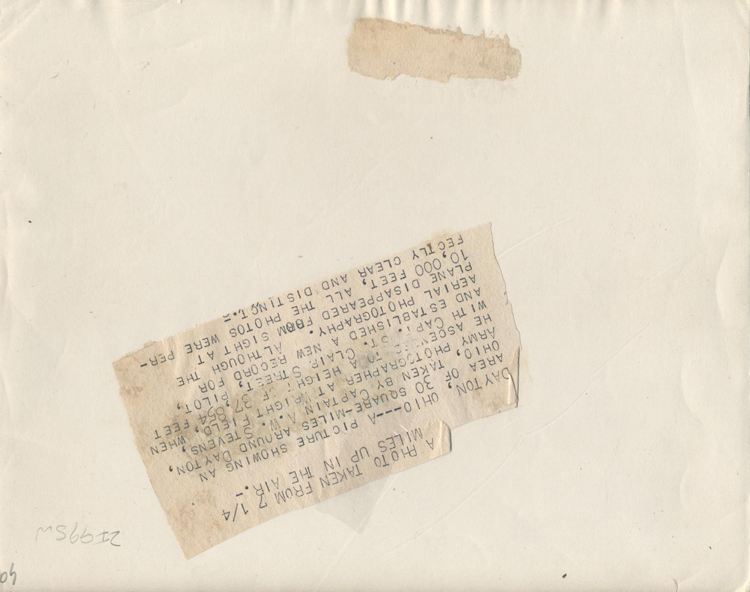 A PHOTO TAKEN FROM 7 1/4
MILES UP IN THE AIR._
DAYTON, OHIO---A PICTURE SHOWING AN
AREA OF 30 SQUARE-MILES AROUND DAYTON,
OHIO, TAKEN BY CAPTAIN A.W. STEVENS,
ARMY PHOTOGRAPHER AT WRIGHT FIELD, WHEN
HE ASCENDED TO A HEIGHT OF 37,854 FEET
WITH CAPT. ST. CLAIR STREET, PILOT,
AND ESTABLISHED A NEW RECORD FOR
AERIAL PHOTOGRAPHY. ALTHOUGH THE
PLANE DISAPPEARED FROM SIGHT AT
10,000 FEET, ALL THE PHOTOS WERE PER-
FECTLY CLEAR AND DISTINCT.